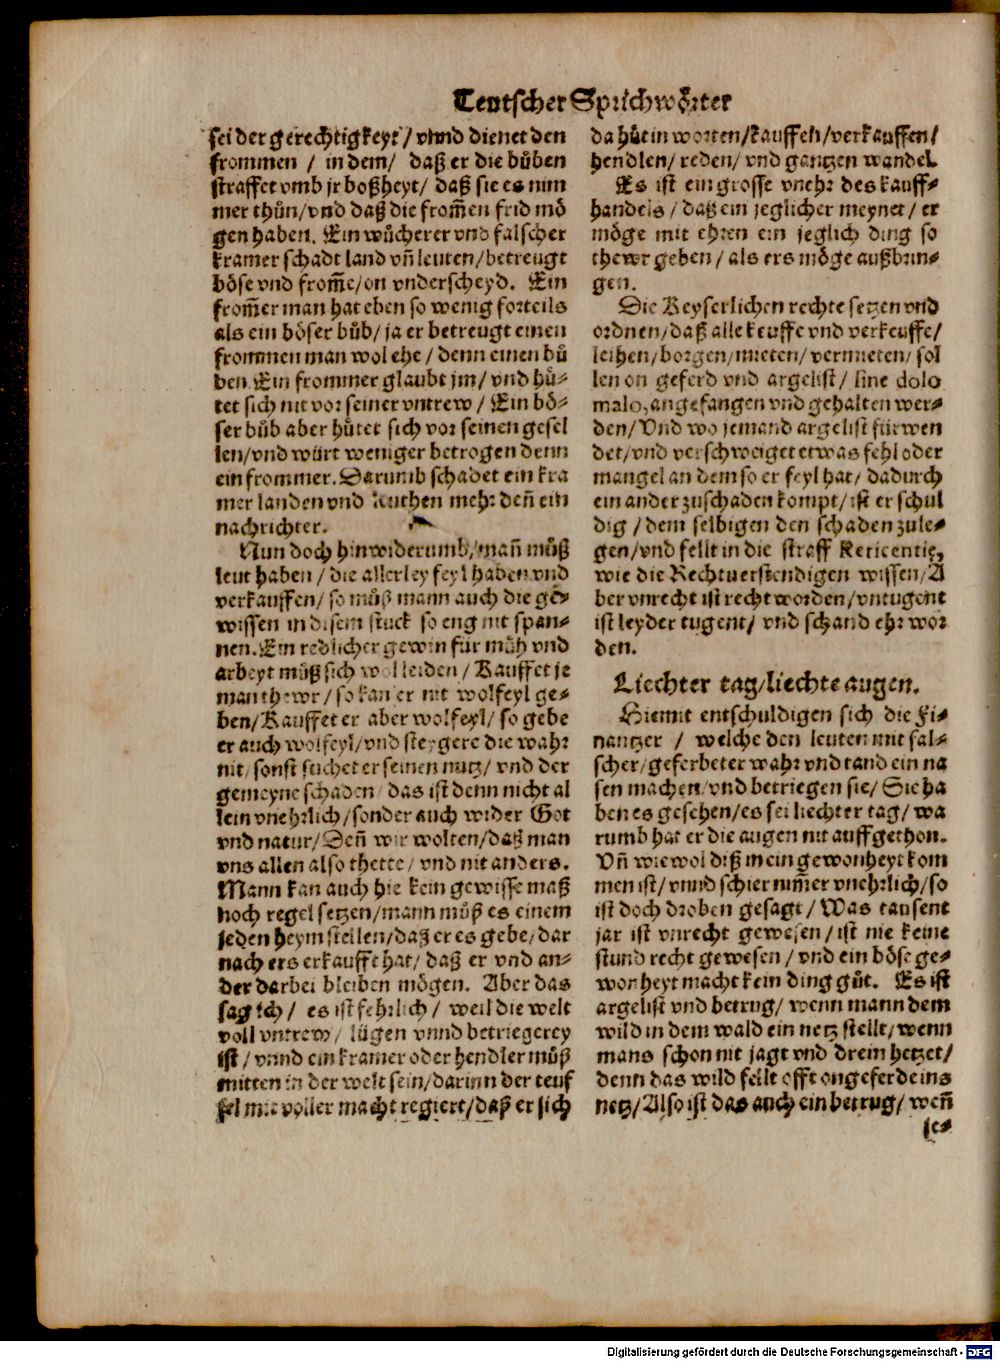 Teutscher Sprichwörter
sei der gerechtigkeyt / vnnd dienet den
frommen / in dem / daß er die bůben
straffet vmb jr boßheyt / daß sie es nim
mer thůn / vnd daß die from̃en frid mö
gen haben. Ein wůcherer vnd falscher
kramer schadt land vñ leuten / betreugt
böse vnd from̃e / on vnderscheyd. Ein
from̃er man hat eben so wenig forteils
als ein böser bůb / ja er betreugt einen
frommen man wol ehe / denn einen bů
ben. Ein frommer glaubt jm / vnd hů-
tet sich nit vor seiner vntrew / Ein bö-
ser bůb aber hůtet sich vor seinen gesel
len / vnd würt weniger betrogen denn
ein frommer. Darumb schadet ein kra
mer landen vnd leuthen mehr deñ ein
nachrichter.
Nun doch hinwiderumb / mañ můß
leut haben / die allerley feyl haben vnd
verkauffen / so můß mann auch die ge-
wissen in disem stuck so eng nit span-
nen. Ein redlicher gewin für můh vnd
arbeyt můß sich wol leiden / Kauffet je
man thewr / so kan er nit wolfeyl ge-
ben / Kauffet er aber wolfeyl / so gebe
er auch wolfeyl / vnd steygere die wahr
nit / sonst suchet er seinen nutz / vnd der
gemeyne schaden / das ist denn nicht al
lein vnehrlich / sonder auch wider Got
vnd natur / Deñ wir wolten / daß man
vns allen also thette / vnd nit anders.
Mann kan auch hie kein gewisse maß
noch regel setzen / mann můß es einem
jeden heym stellen / daß er es gebe / dar
nach ers erkauffe hat / daß er vnd an-
der darbei bleiben mögen. Aber das
sag ich / es ist fehrlich / weil die welt
voll vntrew / lügen vnnd betriegerey
ist / vnnd ein kramer oder hendler můß
mitten in der welt sein / darinn der teuf
fel mit voller macht regiert / daß er sich
da hůt in worten / kauffen / verkauffen /
hendlen / reden / vnd gantzen wandel.
Es ist ein grosse vnehr des kauff-
handels / daß ein jeglicher meynet / er
möge mit ehren ein jeglich ding so
thewr geben / als ers möge außbrin-
gen.
Die Keyserlichen rechte setzen vnd
ordnen / daß alle keuffe vnd verkeuffe /
leihen / borgen / mieten / vermieten / sol
len on geferd vnd argelist / sine dolo
malo, angefangen vnd gehalten wer-
den / Vnd wo jemand argelist fürwen
det / vnd verschweiget etwas fehl oder
mangel an dem so er feyl hat / dadurch
ein ander zuschaden kompt / ist er schul
dig / dem selbigen den schaden zule-
gen / vnd fellt in die straff Reticentie,
wie die Rechtuerstendigen wissen / A
ber vnrecht ist recht worden / vntugent
ist leyder tugent / vnd schand ehr wor
den.
Liechter tag / liechte augen.
Hiemit entschuldigen sich die Fi-
nantzer / welche den leuten mit fal-
scher / geferbeter wahr vnd tand ein na
sen machen / vnd betriegen sie / Sie ha
ben es gesehen / es sei liechter tag / wa
rumb hat er die augen nit auffgethon.
Vñ wiewol diß in ein gewonheyt kom
men ist / vnnd schier nim̃er vnehrlich / so
ist doch droben gesagt / Was tausent
jar ist vnrecht gewesen / ist nie keine
stund recht gewesen / vnd ein böse ge-
wonheyt macht kein ding gůt. Es ist
argelist vnd betrug / wenn mann dem
wild in dem wald ein netz stellt / wenn
mans schon nit jagt vnd drein hetzet /
denn das wild fellt offt ongeferde ins
netz / Also ist das auch ein betrug / weñ
je-
Digitalisierung gefördert durch die Deutsche Forschungsgemeinschaft - DFG